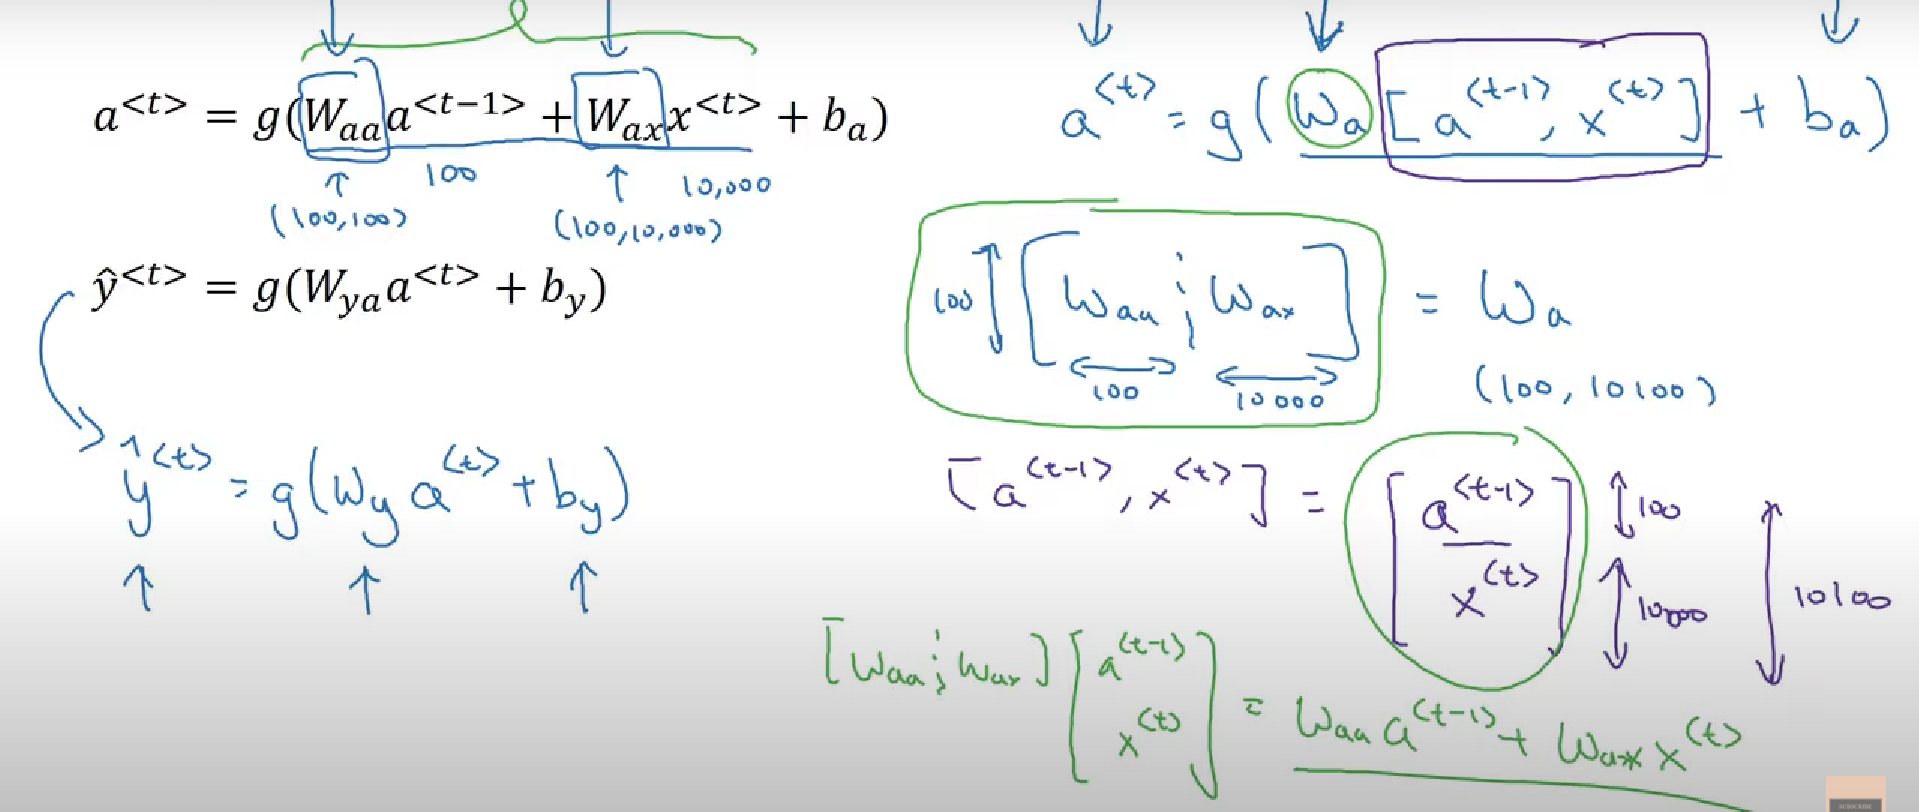 a<t> = g(Waa a<t−1> + Wax x<t> + ba)
100
10,000
(100,100)
(100,10,000)
ŷ<t> = g(Wya a<t> + by)
ŷ<t> = g(Wy a<t> + by)
a<t> = g(Wa [a<t-1>, x<t>] + ba)
100 [Waa ¦ Wax] = Wa
100
10000
(100, 10100)
[a<t-1>, x<t>] = [a<t-1>
x<t>]
100
10000
10100
[Waa ¦ Wax] [a<t-1>
x<t>] = Waa a<t-1> + Wax x<t>
SUBSCRIBE